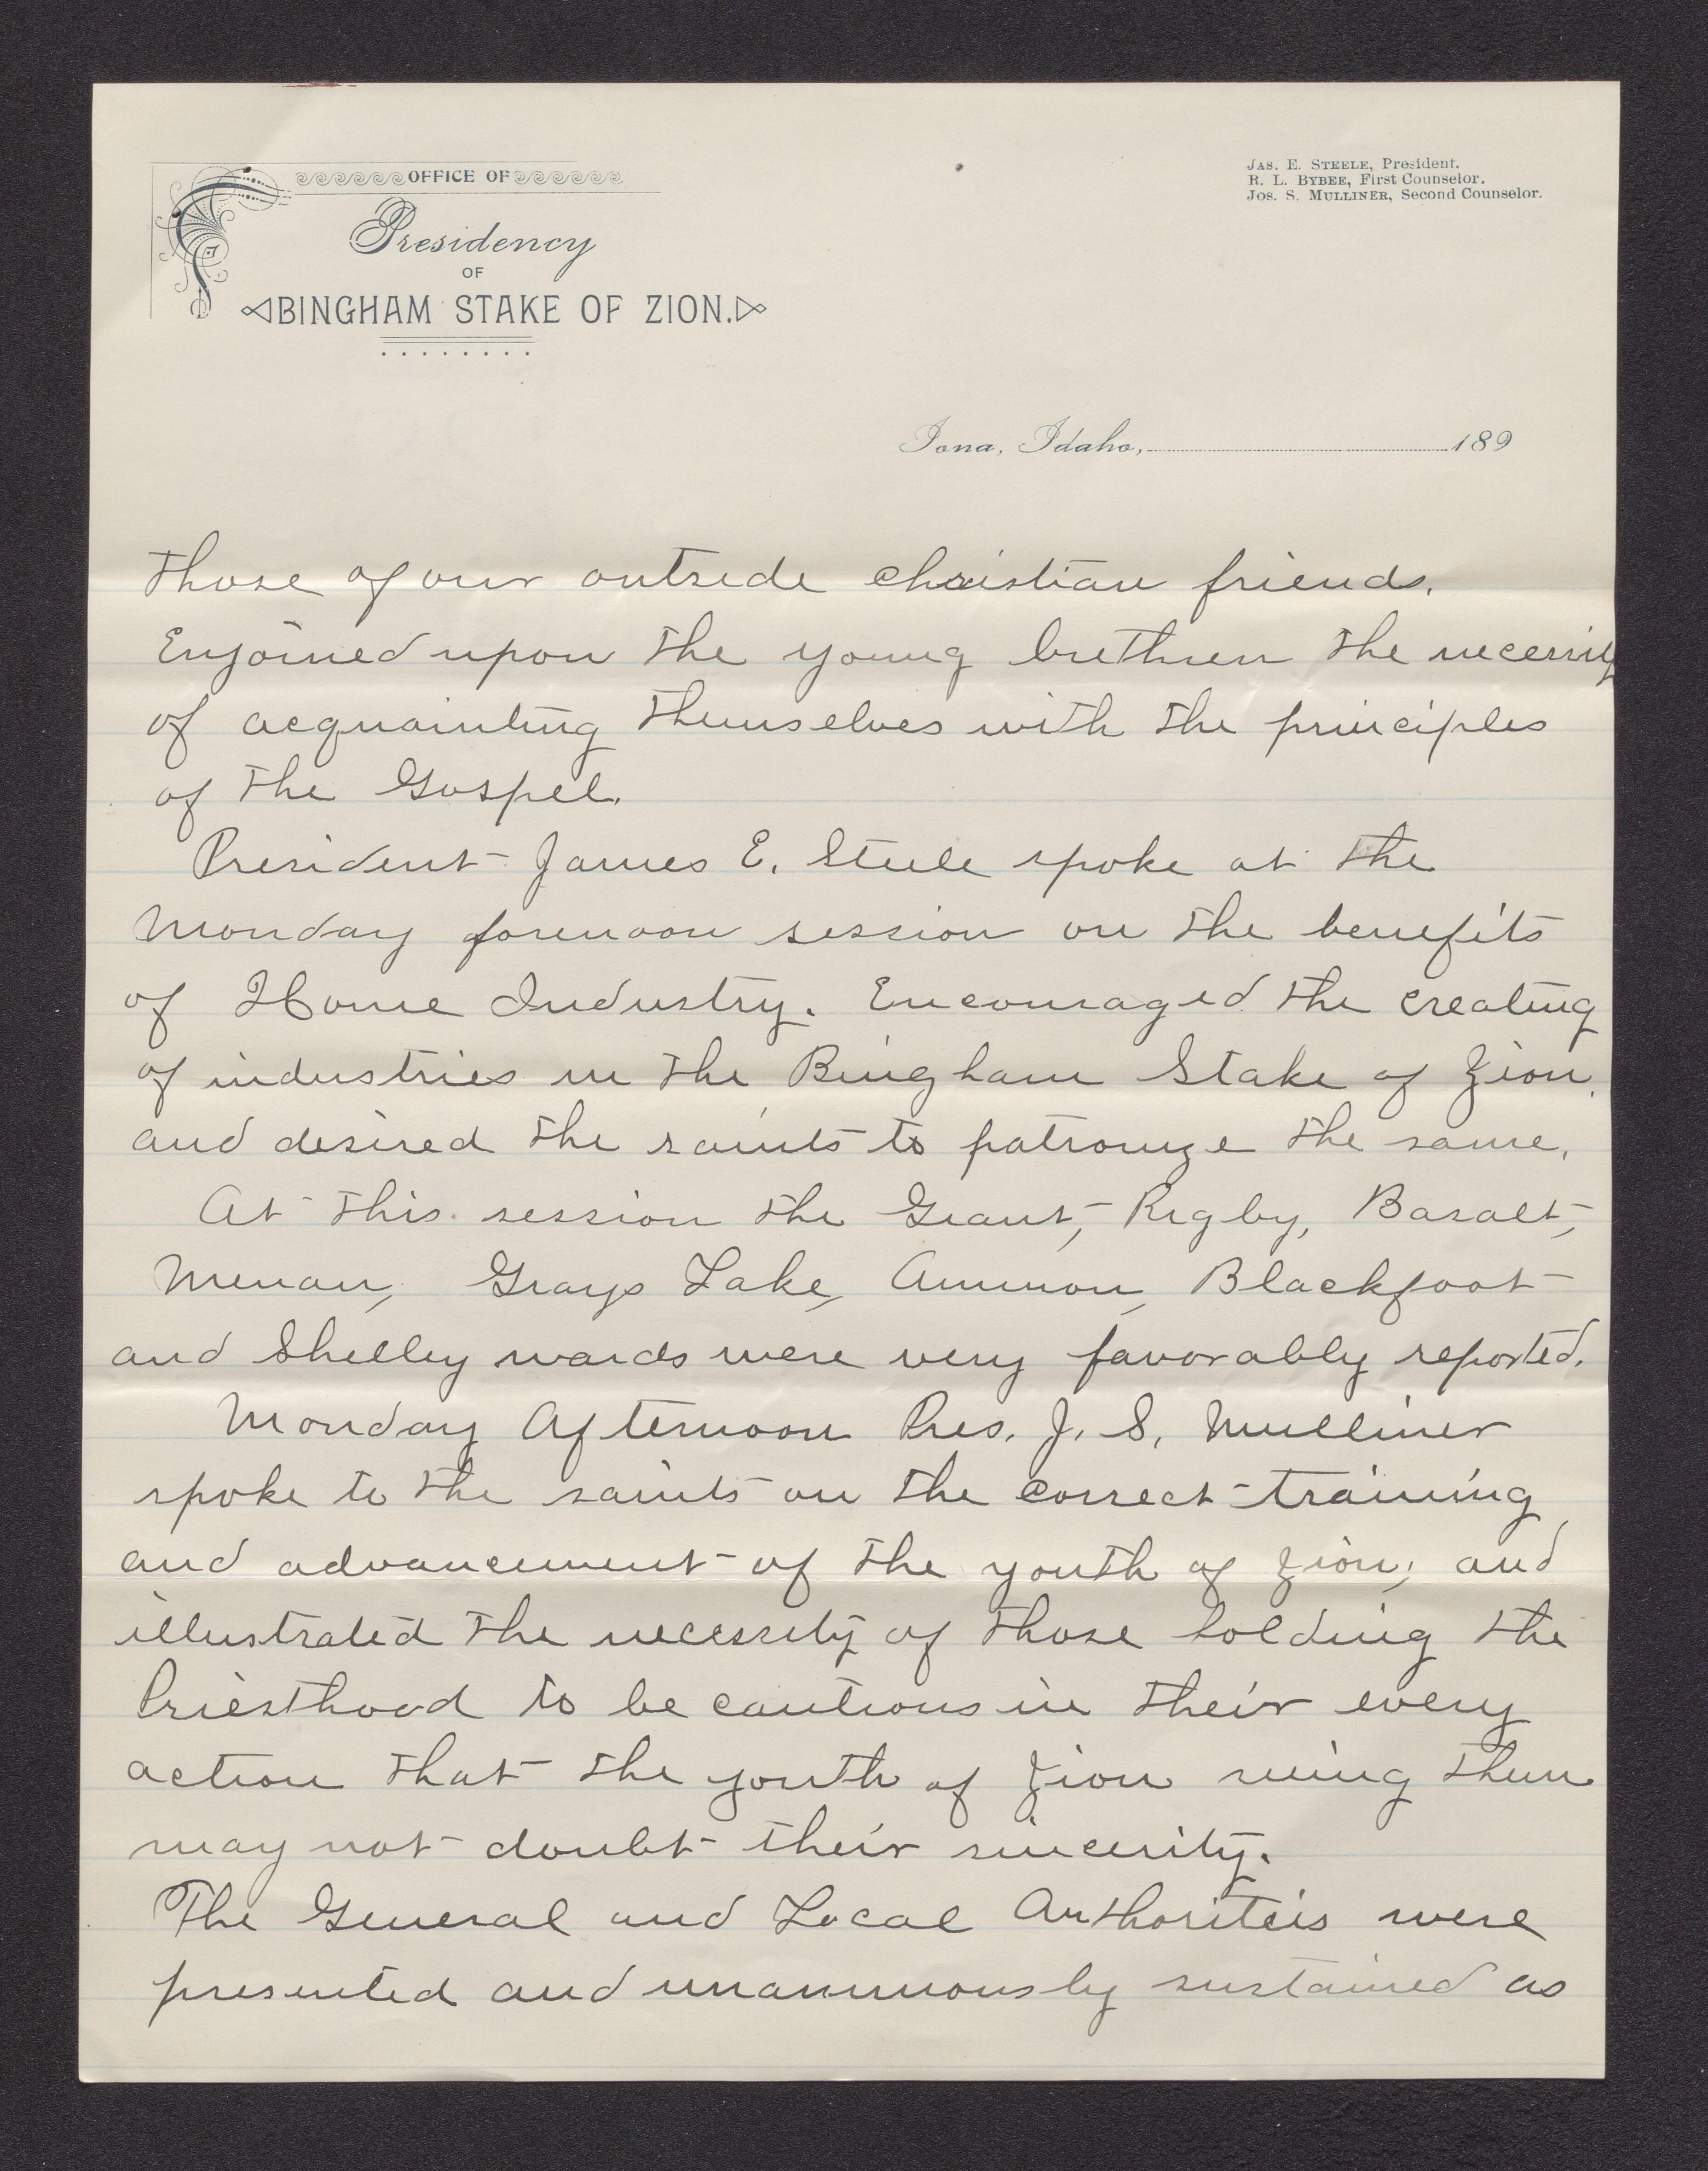 OFFICE OF
Presidency
OF
BINGHAM STAKE OF ZION.
JAS. E. STEELE, President.
R. L. BYBEE, First Counselor.
JOS. S. MULLINER, Second Counselor.
Iona, Idaho, 189
those of our outside christian friends.
Enjoined upon the young brethren the necessity
of acquainting themselves with the principles
of the Gospel.
President James E. Steele spoke at the
Monday forenoon session on the benefits
of Home Industry. Encouraged the creating
of industries in the Bingham Stake of Zion,
and desired the saints to patronize the same.
At this session the Grant, Rigby, Basalt,
Menan, Grays Lake, Ammon, Blackfoot
and Shelley wards were very favorably reported.
Monday Afternoon Pres. J. S. Mulliner
spoke to the saints on the correct training
and advancement of the youth of Zion; and
illustrated the necessity of those holding the
Priesthood to be cautious in their every
action that the youth of Zion seeing them
may not doubt their sincerity.
The General and Local Authoriteis were
presented and unanimously sustained as